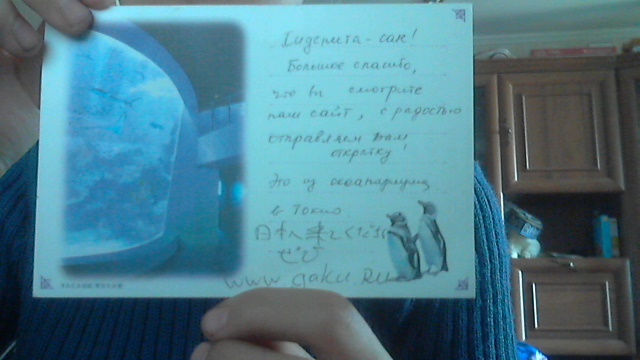 Хидешита-сан!
Большое спасибо,
что вы смотрите
наш сайт, с радостью
отправляем Вам
открытку!
Это из океанариума
в Токио
www.gaku.ru